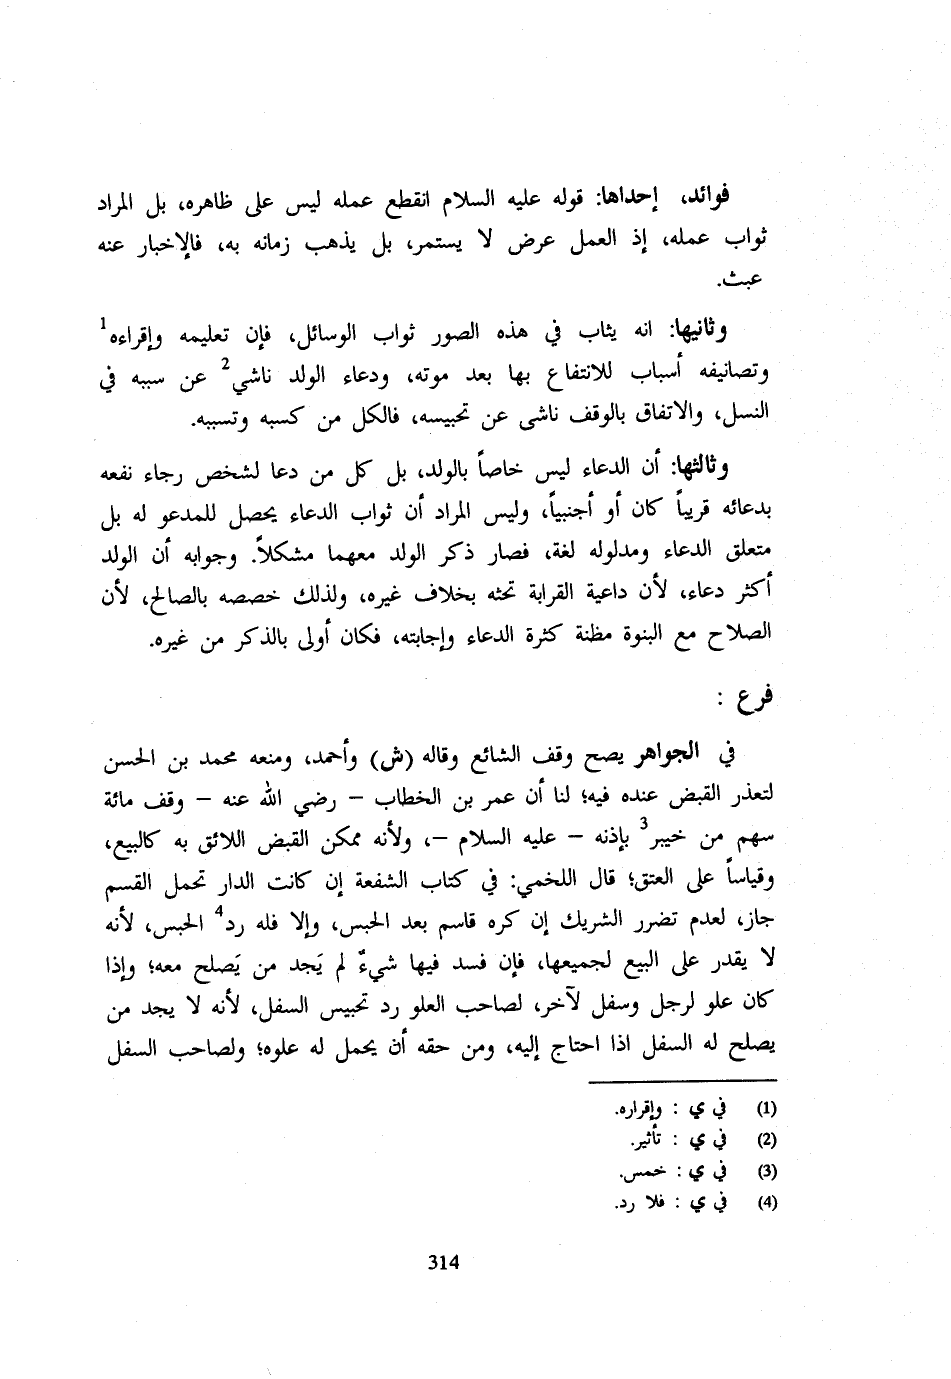 فوائد، إحداها: قوله عليه السلام انقطع عمله ليس على ظاهره، بل المراد
ثواب عمله، إذ العمل عرض لا يستمر، بل يذهب زمانه به، فالإخبار عنه
عبث.
وثانيها: انه يثاب في هذه الصور ثواب الوسائل، فإن تعليمه وإقراءه1
وتصانيفه أسباب للانتفاع بها بعد موته، ودعاء الولد ناشي2 عن سببه في
النسل، والاتفاق بالوقف ناشى عن تحبيسه، فالكل من كسبه وتسببه.
وثالثها: أن الدعاء ليس خاصاً بالولد، بل كل من دعا لشخص رجاء نفعه
بدعائه قريباً كان أو أجنبياً، وليس المراد أن ثواب الدعاء يحصل للمدعو له بل
متعلق الدعاء ومدلوله لغة، فصار ذكر الولد معهما مشكلاً. وجوابه أن الولد
أكثر دعاء، لأن داعية القرابة تحثه بخلاف غيره، ولذلك خصصه بالصالح، لأن
الصلاح مع البنوة مظنة كثرة الدعاء وإجابته، فكان أولى بالذكر من غيره.
فرع :
في الجواهر يصح وقف الشائع وقاله (ش) وأحمد، ومنعه محمد بن الحسن
لتعذر القبض عنده فيه؛ لنا أن عمر بن الخطاب – رضي الله عنه – وقف مائة
سهم من خيبر3 بإذنه – عليه السلام –، ولأنه ممكن القبض اللائق به كالبيع،
وقياساً على العتق؛ قال اللخمي: في كتاب الشفعة إن كانت الدار تحمل القسم
جاز، لعدم تضرر الشريك إن كره قاسم بعد الحبس، وإلا فله رد4 الحبس، لأنه
لا يقدر على البيع لجميعها، فإن فسد فيها شيءٌ لم يَجد من يَصلح معه؛ وإذا
كان علو لرجل وسفل لآخر، لصاحب العلو رد تحبيس السفل، لأنه لا يجد من
يصلح له السفل اذا احتاج إليه، ومن حقه أن يحمل له علوه؛ ولصاحب السفل
(1) في ي : وإقراره.
(2) في ي : تأثير.
(3) في ي : خمس.
(4) في ي : فلا رد.
314